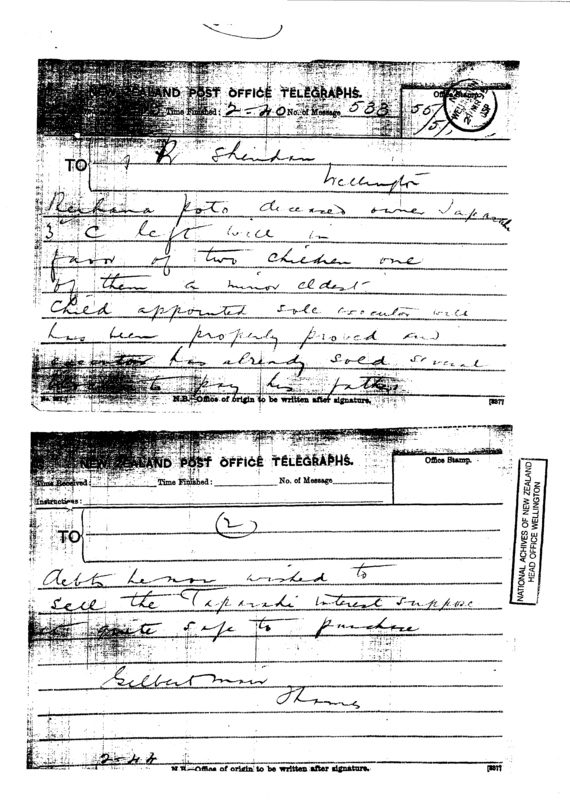 NEW ZEALAND POST OFFICE TELEGRAPHS.
Time Finished: 2-40 No. of Message 533
Office Stamp.
56/
/5/
TO R Sheridan
Wellington
Reihana poto deceased owner Taparahi
3 C left will in
favor of two children one
of them a minor eldest
child appointed sole executor will
has been properly proved and
executor has already sold several
to pay his father
N.B.—Office of origin to be written after signature.
NEW ZEALAND POST OFFICE TELEGRAPHS.
Office Stamp.
Time Received: Time Finished: No. of Message
Instructions:
TO (2)
debts he now wished to
sell the Taparahi interest suppose
quite safe to purchase
Gilbert Mair
Thames
2-44
N.B.—Office of origin to be written after signature.
NATIONAL ACHIVES OF NEW ZEALAND
HEAD OFFICE WELLINGTON